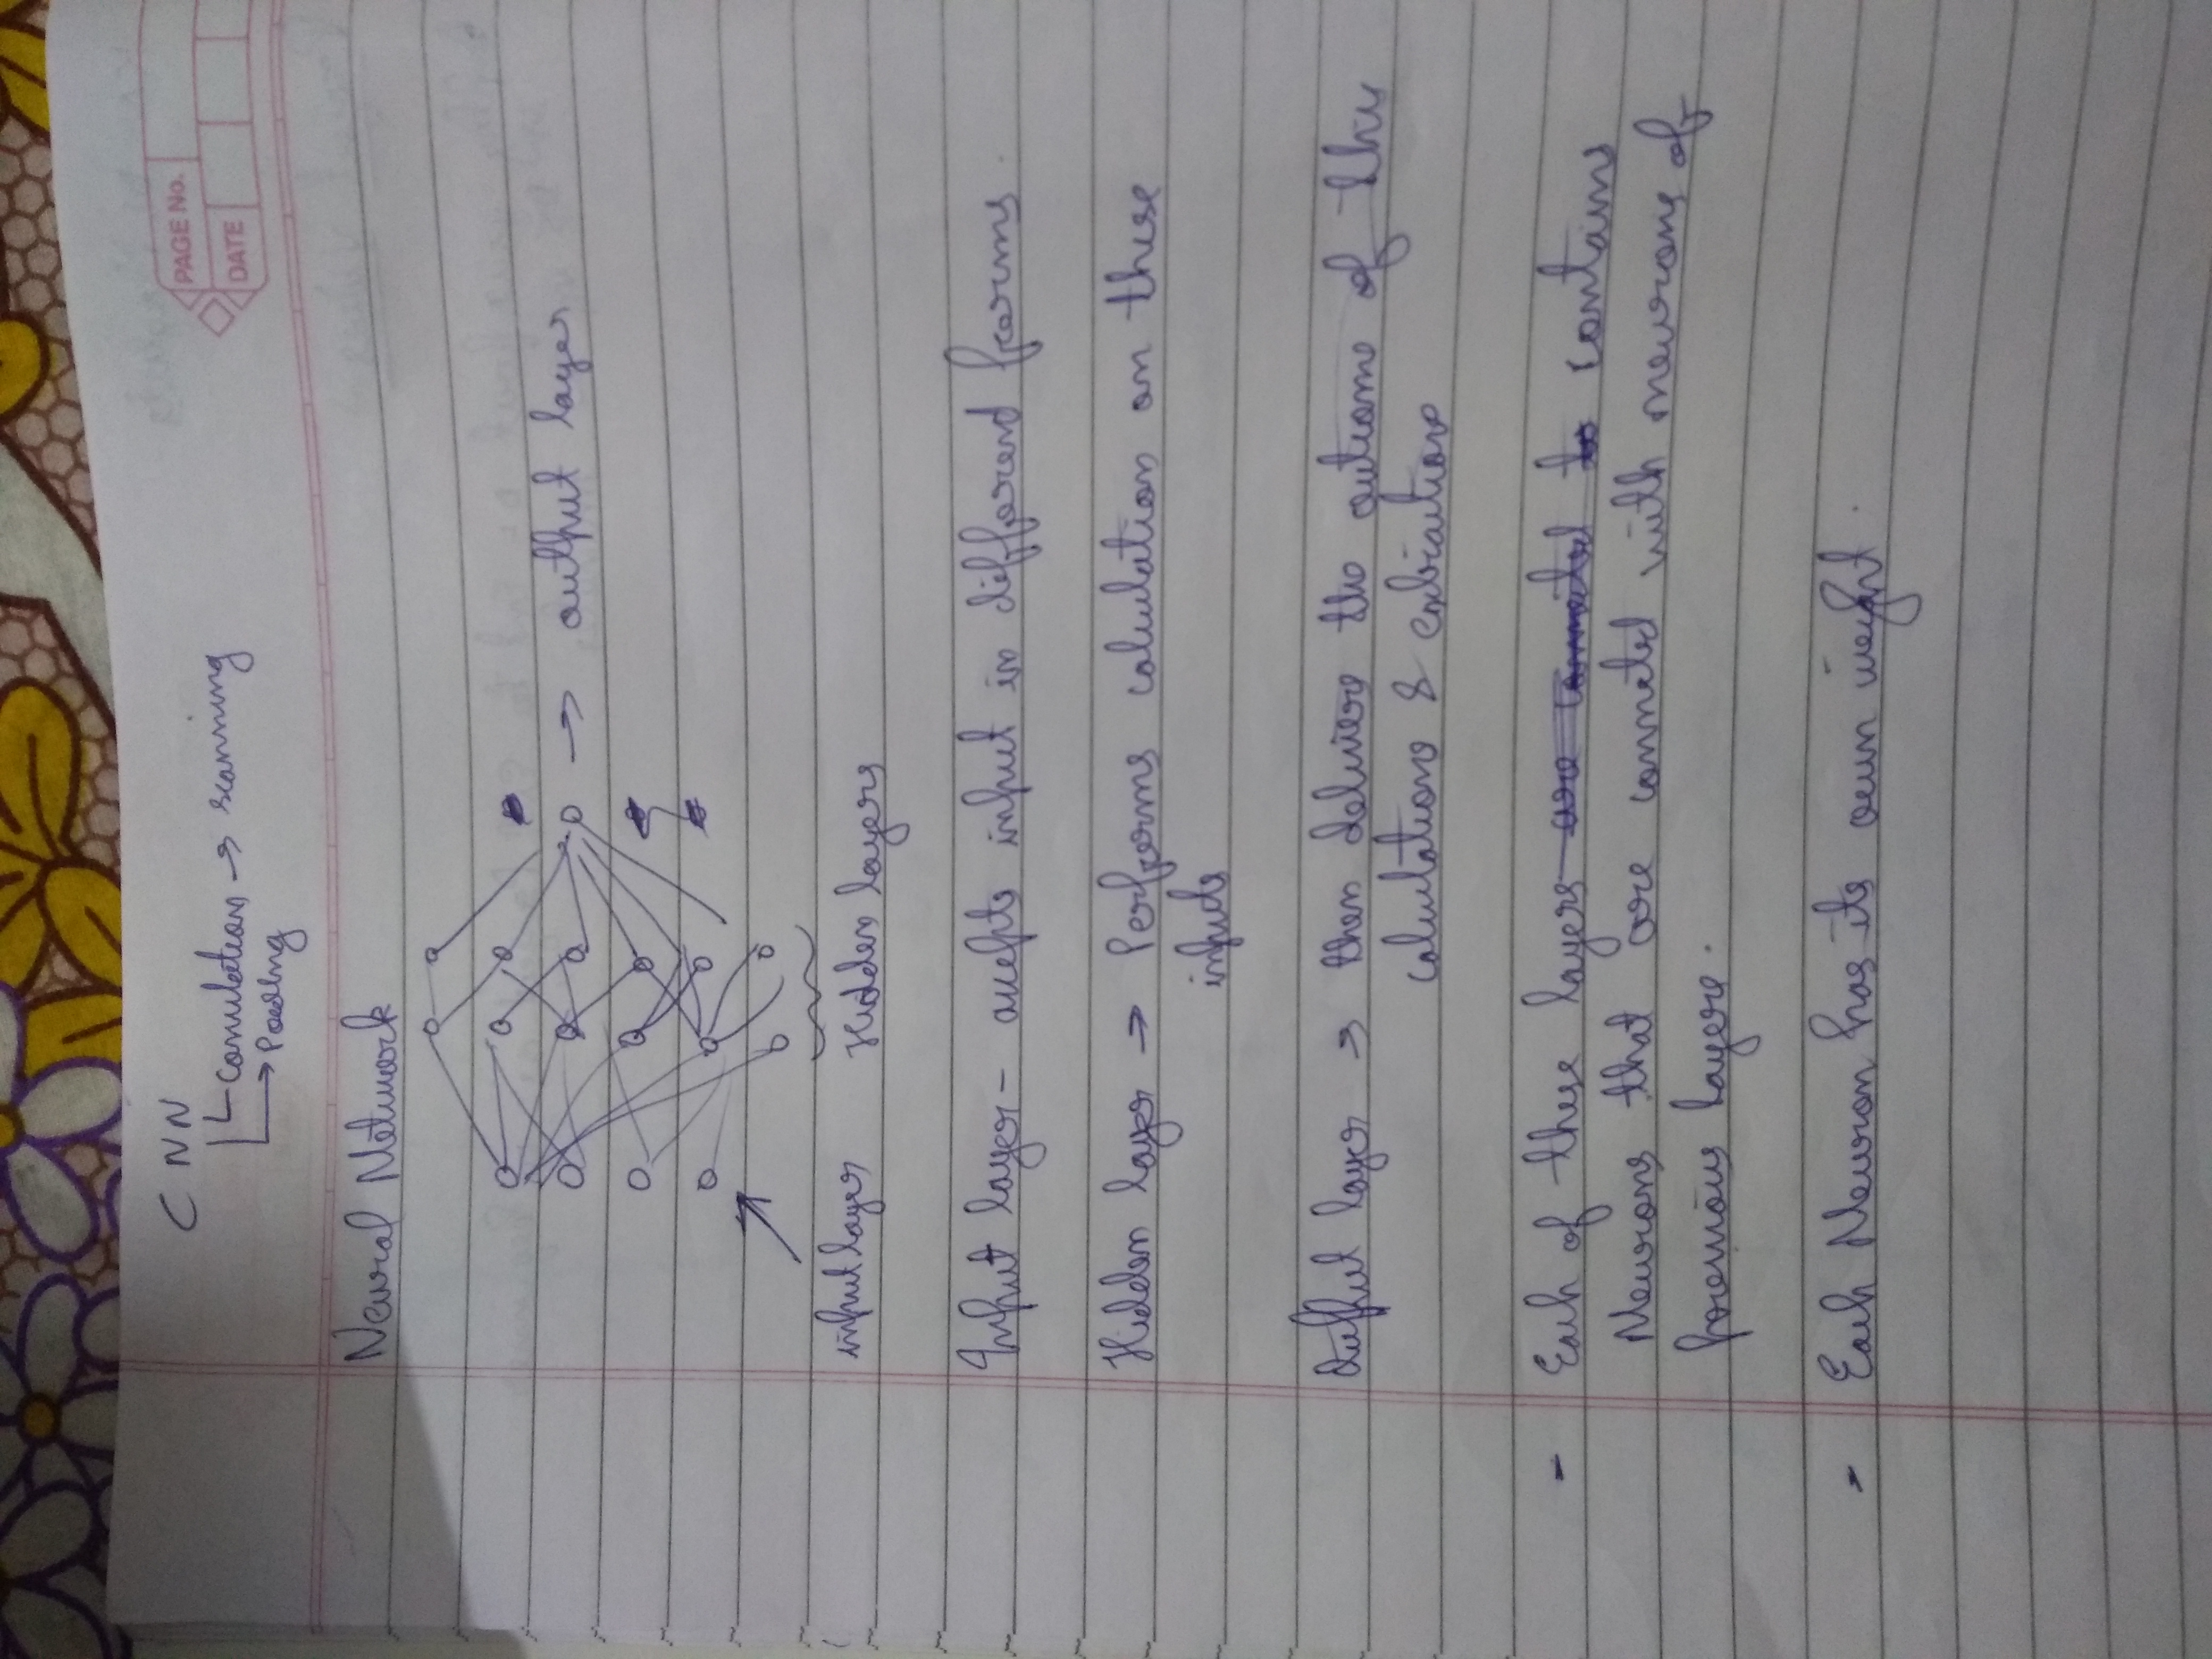 PAGE No.
DATE
CNN
Convulation → scanning
→ Pooling
Neural Network
→ output layer
input layer Hidden layers
Input layer - accepts input in different forms.
Hidden layer → Performs calculation on these
inputs
Output layer → then delivers the outcome of this
calculations &
- Each of these layers are connected to contains
Neurons that are connected with neurons of
previous layers.
- Each Neuron has its own weight.